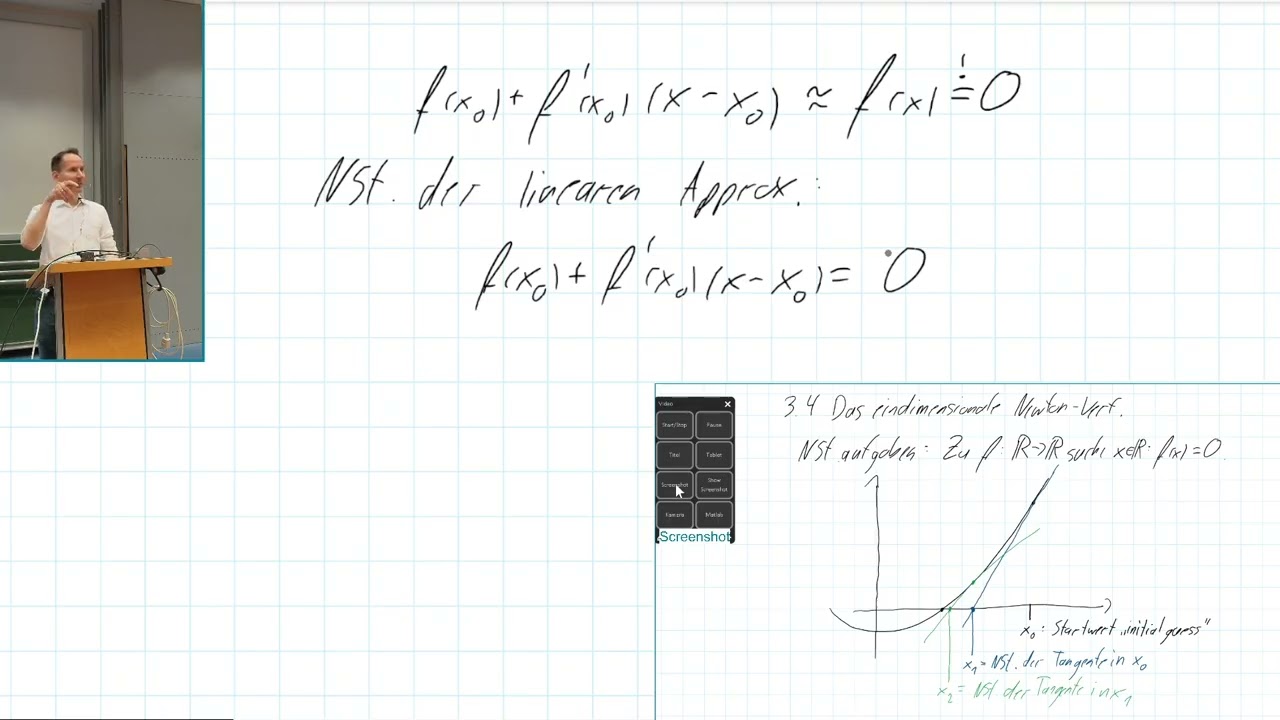 f(x₀) + f'(x₀)(x - x₀) ≈ f(x) ≐! 0
NSt. der linearen Approx.:
f(x₀) + f'(x₀)(x - x₀) = 0
Video ×
Start/Stop Pause
Titel Tablet
Screenshot Show Screenshot
Kamera Matlab
Screenshot
3.4 Das eindimensionale Newton-Verf.
NSt aufgaben: Zu f: ℝ→ℝ suche x∈ℝ: f(x)=0.
x₀: Startwert „initial guess"
x₁ = NSt. der Tangente in x₀
x₂ = NSt. der Tangente in x₁